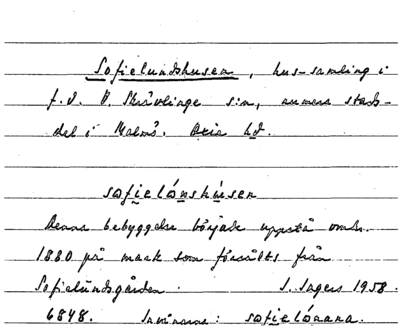 Sofielundshusen, hus-samling i
f.d. V. Skrävlinge sn, numera stads-
del i Malmö. Oxie hd.
sofielúnshúsen
Denna bebyggelse började uppstå omkr.
1880 på mark som försålts från
Sofielundsgården. I. Ingers 1958.
6848. Invånarna: